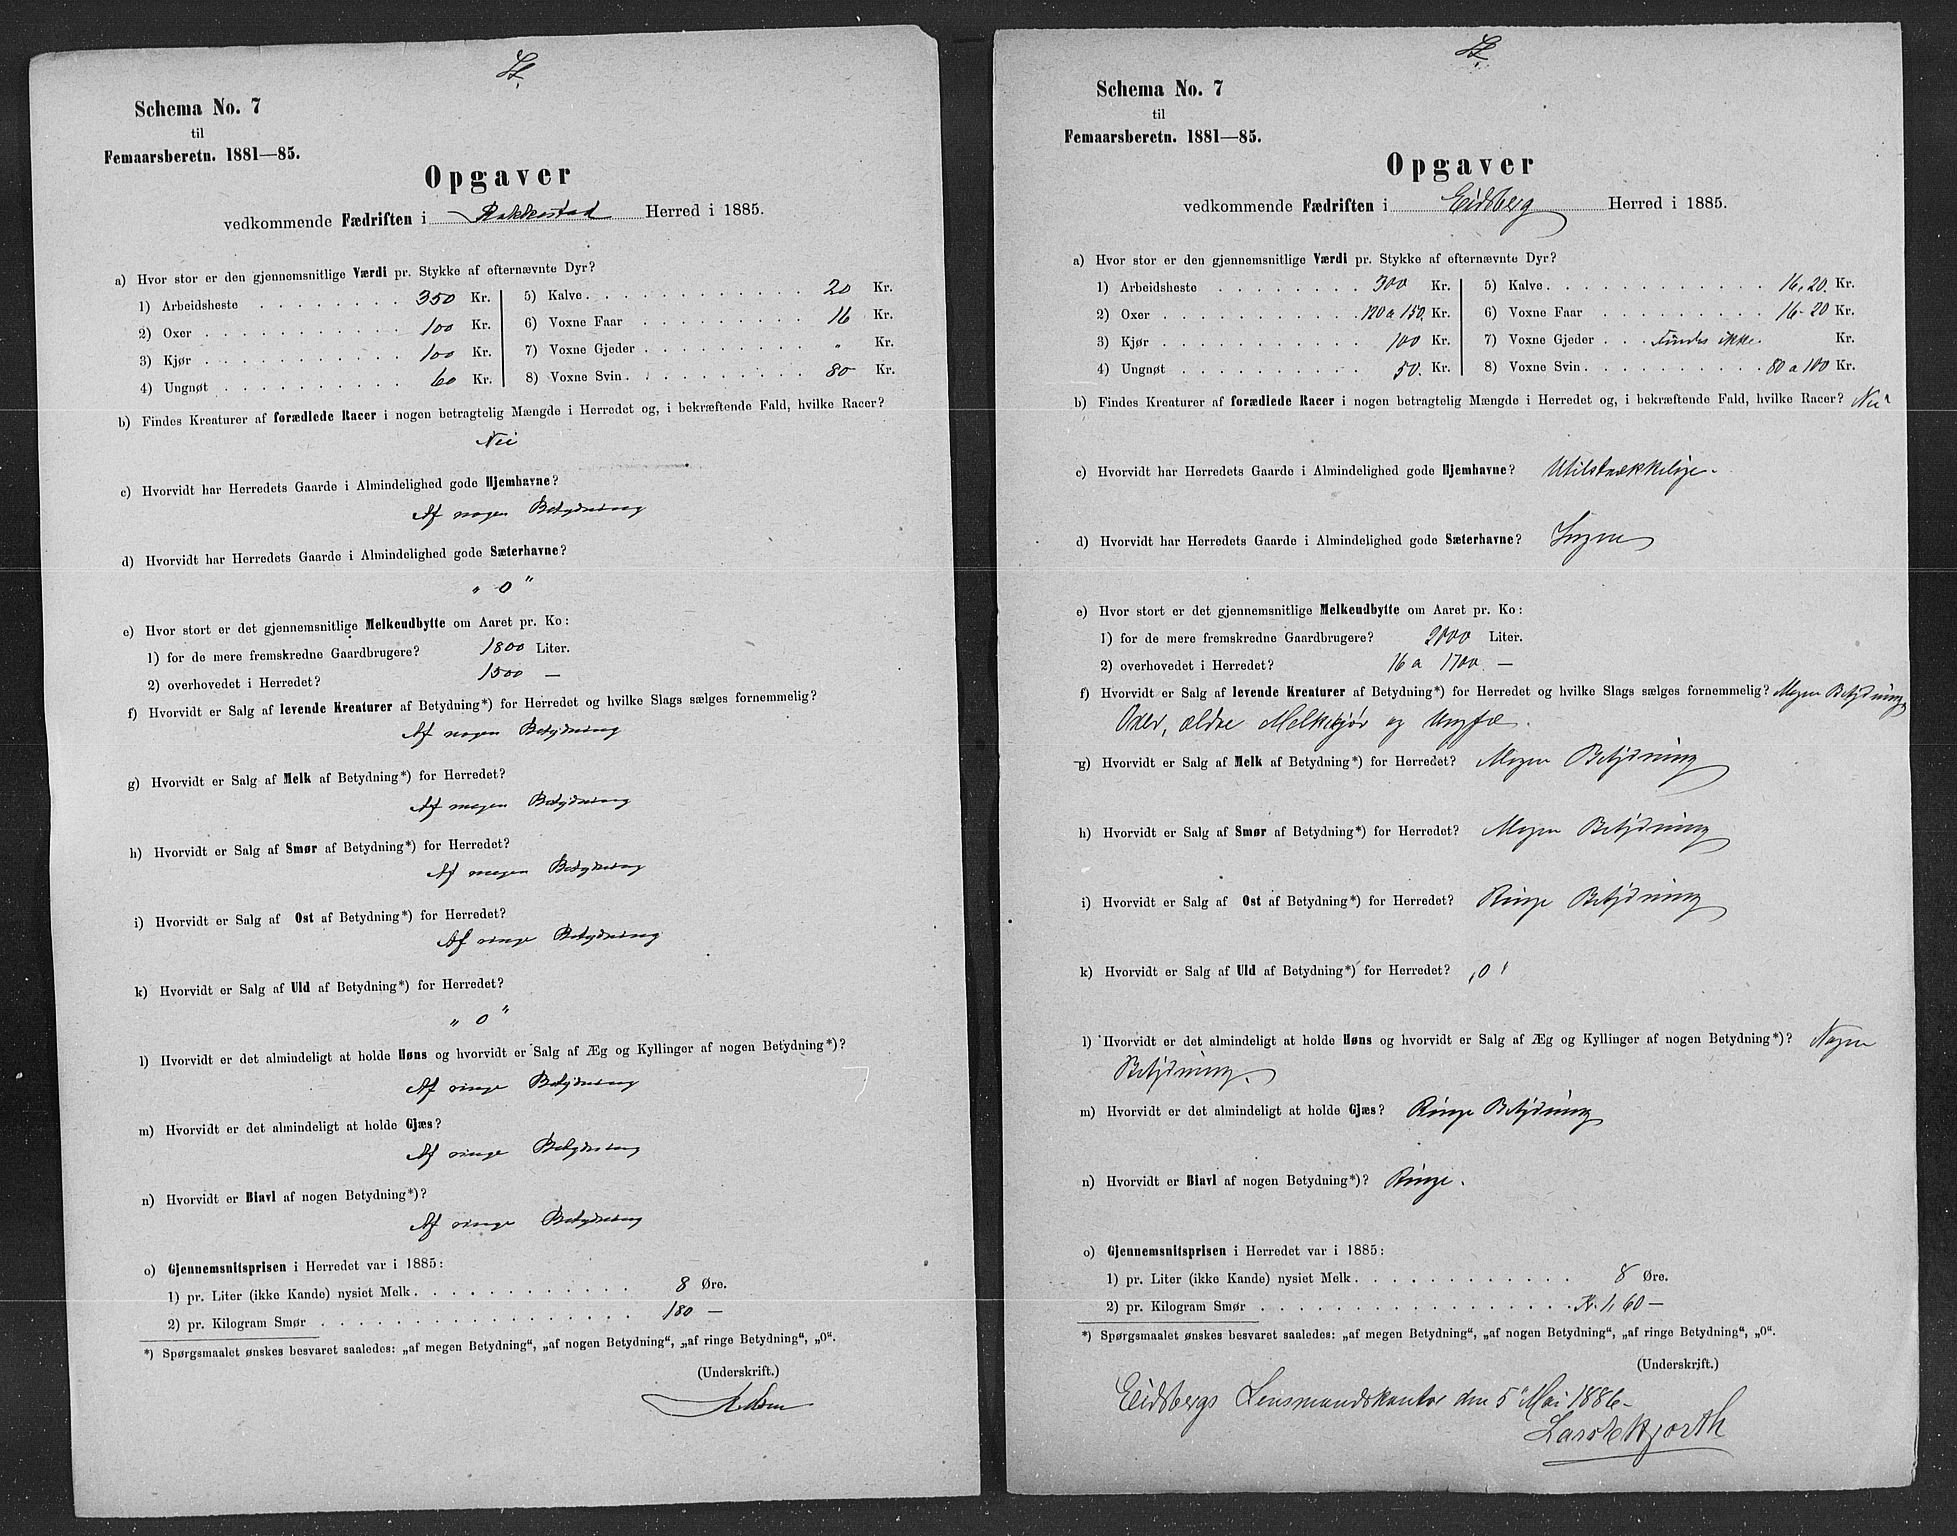 Schema No. 7
til
Femaarsberetn. 1881—85.
Opgaver
vedkommende Fædriften i Rakkestad Herred i 1885.
a) Hvor stor er den gjennemsnitlige Værdi pr. Stykke af efternævnte Dyr?
1) Arbeidsheste . . . . . . . . 350 Kr.
2) Oxer . . . . . . . . . . . 100 Kr.
3) Kjør . . . . . . . . . . . 100 Kr.
4) Ungnøt . . . . . . . . . . 60 Kr.
5) Kalve . . . . . . . . . . . 20 Kr.
6) Voxne Faar . . . . . . . . . 16 Kr.
7) Voxne Gjeder . . . . . . . . „ Kr.
8) Voxne Svin . . . . . . . . . 80 Kr.
b) Findes Kreaturer af forædlede Racer i nogen betragtelig Mængde i Herredet og, i bekræftende Fald, hvilke Racer?
Nei
c) Hvorvidt har Herredets Gaarde i Almindelighed gode Hjemhavne?
Af nogen Betydning
d) Hvorvidt har Herredets Gaarde i Almindelighed gode Sæterhavne?
„ 0 "
e) Hvor stort er det gjennemsnitlige Melkeudbytte om Aaret pr. Ko:
1) for de mere fremskredne Gaardbrugere? 1800 Liter.
2) overhovedet i Herredet? 1500 —
f) Hvorvidt er Salg af levende Kreaturer af Betydning*) for Herredet og hvilke Slags sælges fornemmelig?
Af nogen Betydning
g) Hvorvidt er Salg af Melk af Betydning*) for Herredet?
Af megen Betydning
h) Hvorvidt er Salg af Smør af Betydning*) for Herredet?
Af megen Betydning
i) Hvorvidt er Salg af Ost af Betydning*) for Herredet?
Af ringe Betydning
k) Hvorvidt er Salg af Uld af Betydning*) for Herredet?
„ 0 "
l) Hvorvidt er det almindeligt at holde Høns og hvorvidt er Salg af Æg og Kyllinger af nogen Betydning*)?
Af ringe Betydning
m) Hvorvidt er det almindeligt at holde Gjæs?
Af ringe Betydning
n) Hvorvidt er Biavl af nogen Betydning*)?
Af ringe Betydning
o) Gjennemsnitsprisen i Herredet var i 1885:
1) pr. Liter (ikke Kande) nysiet Melk . . . . . . . . . . . . 8 Øre.
2) pr. Kilogram Smør . . . . . . . . . . . . . . . . 180 —
*) Spørgsmaalet ønskes besvaret saaledes: „af megen Betydning“, „af nogen Betydning“, „af ringe Betydning“, „0“.
(Underskrift.)
Schema No. 7
til
Femaarsberetn. 1881—85.
Opgaver
vedkommende Fædriften i Eidsberg Herred i 1885.
a) Hvor stor er den gjennemsnitlige Værdi pr. Stykke af efternævnte Dyr?
1) Arbeidsheste . . . . . . . . 300 Kr.
2) Oxer . . . . . . . . . . . 120 a 150. Kr.
3) Kjør . . . . . . . . . . . 100 Kr.
4) Ungnøt . . . . . . . . . . 50. Kr.
5) Kalve . . . . . . . . . . . 16, 20. Kr.
6) Voxne Faar . . . . . . . . . 16-20 Kr.
7) Voxne Gjeder . . . Findes ikke. Kr.
8) Voxne Svin . . . . . . . . . 80 a 100 Kr.
b) Findes Kreaturer af forædlede Racer i nogen betragtelig Mængde i Herredet og, i bekræftende Fald, hvilke Racer? Nei
c) Hvorvidt har Herredets Gaarde i Almindelighed gode Hjemhavne? Utilstrækkelige.
d) Hvorvidt har Herredets Gaarde i Almindelighed gode Sæterhavne? Ingen
e) Hvor stort er det gjennemsnitlige Melkeudbytte om Aaret pr. Ko:
1) for de mere fremskredne Gaardbrugere? 2000 Liter.
2) overhovedet i Herredet? 16 a 1700 —
f) Hvorvidt er Salg af levende Kreaturer af Betydning*) for Herredet og hvilke Slags sælges fornemmelig? Megen Betydning
Oxer, ældre Melkekjør og Ungfæ.
g) Hvorvidt er Salg af Melk af Betydning*) for Herredet? Megen Betydning
h) Hvorvidt er Salg af Smør af Betydning*) for Herredet? Megen Betydning
i) Hvorvidt er Salg af Ost af Betydning*) for Herredet? Ringe Betydning
k) Hvorvidt er Salg af Uld af Betydning*) for Herredet? „0"
l) Hvorvidt er det almindeligt at holde Høns og hvorvidt er Salg af Æg og Kyllinger af nogen Betydning*)? Nogen
Betydning.
m) Hvorvidt er det almindeligt at holde Gjæs? Ringe Betydning
n) Hvorvidt er Biavl af nogen Betydning*)? Ringe.
o) Gjennemsnitsprisen i Herredet var i 1885:
1) pr. Liter (ikke Kande) nysiet Melk . . . . . . . . . . . . 8 Øre.
2) pr. Kilogram Smør . . . . . . . . . . . . . . . . Kr. 1, 60 —
*) Spørgsmaalet ønskes besvaret saaledes: „af megen Betydning“, „af nogen Betydning“, „af ringe Betydning“, „0“.
(Underskrift.)
Eidsbergs Lensmandskontor den 5 Mai 1886.
Hjorth